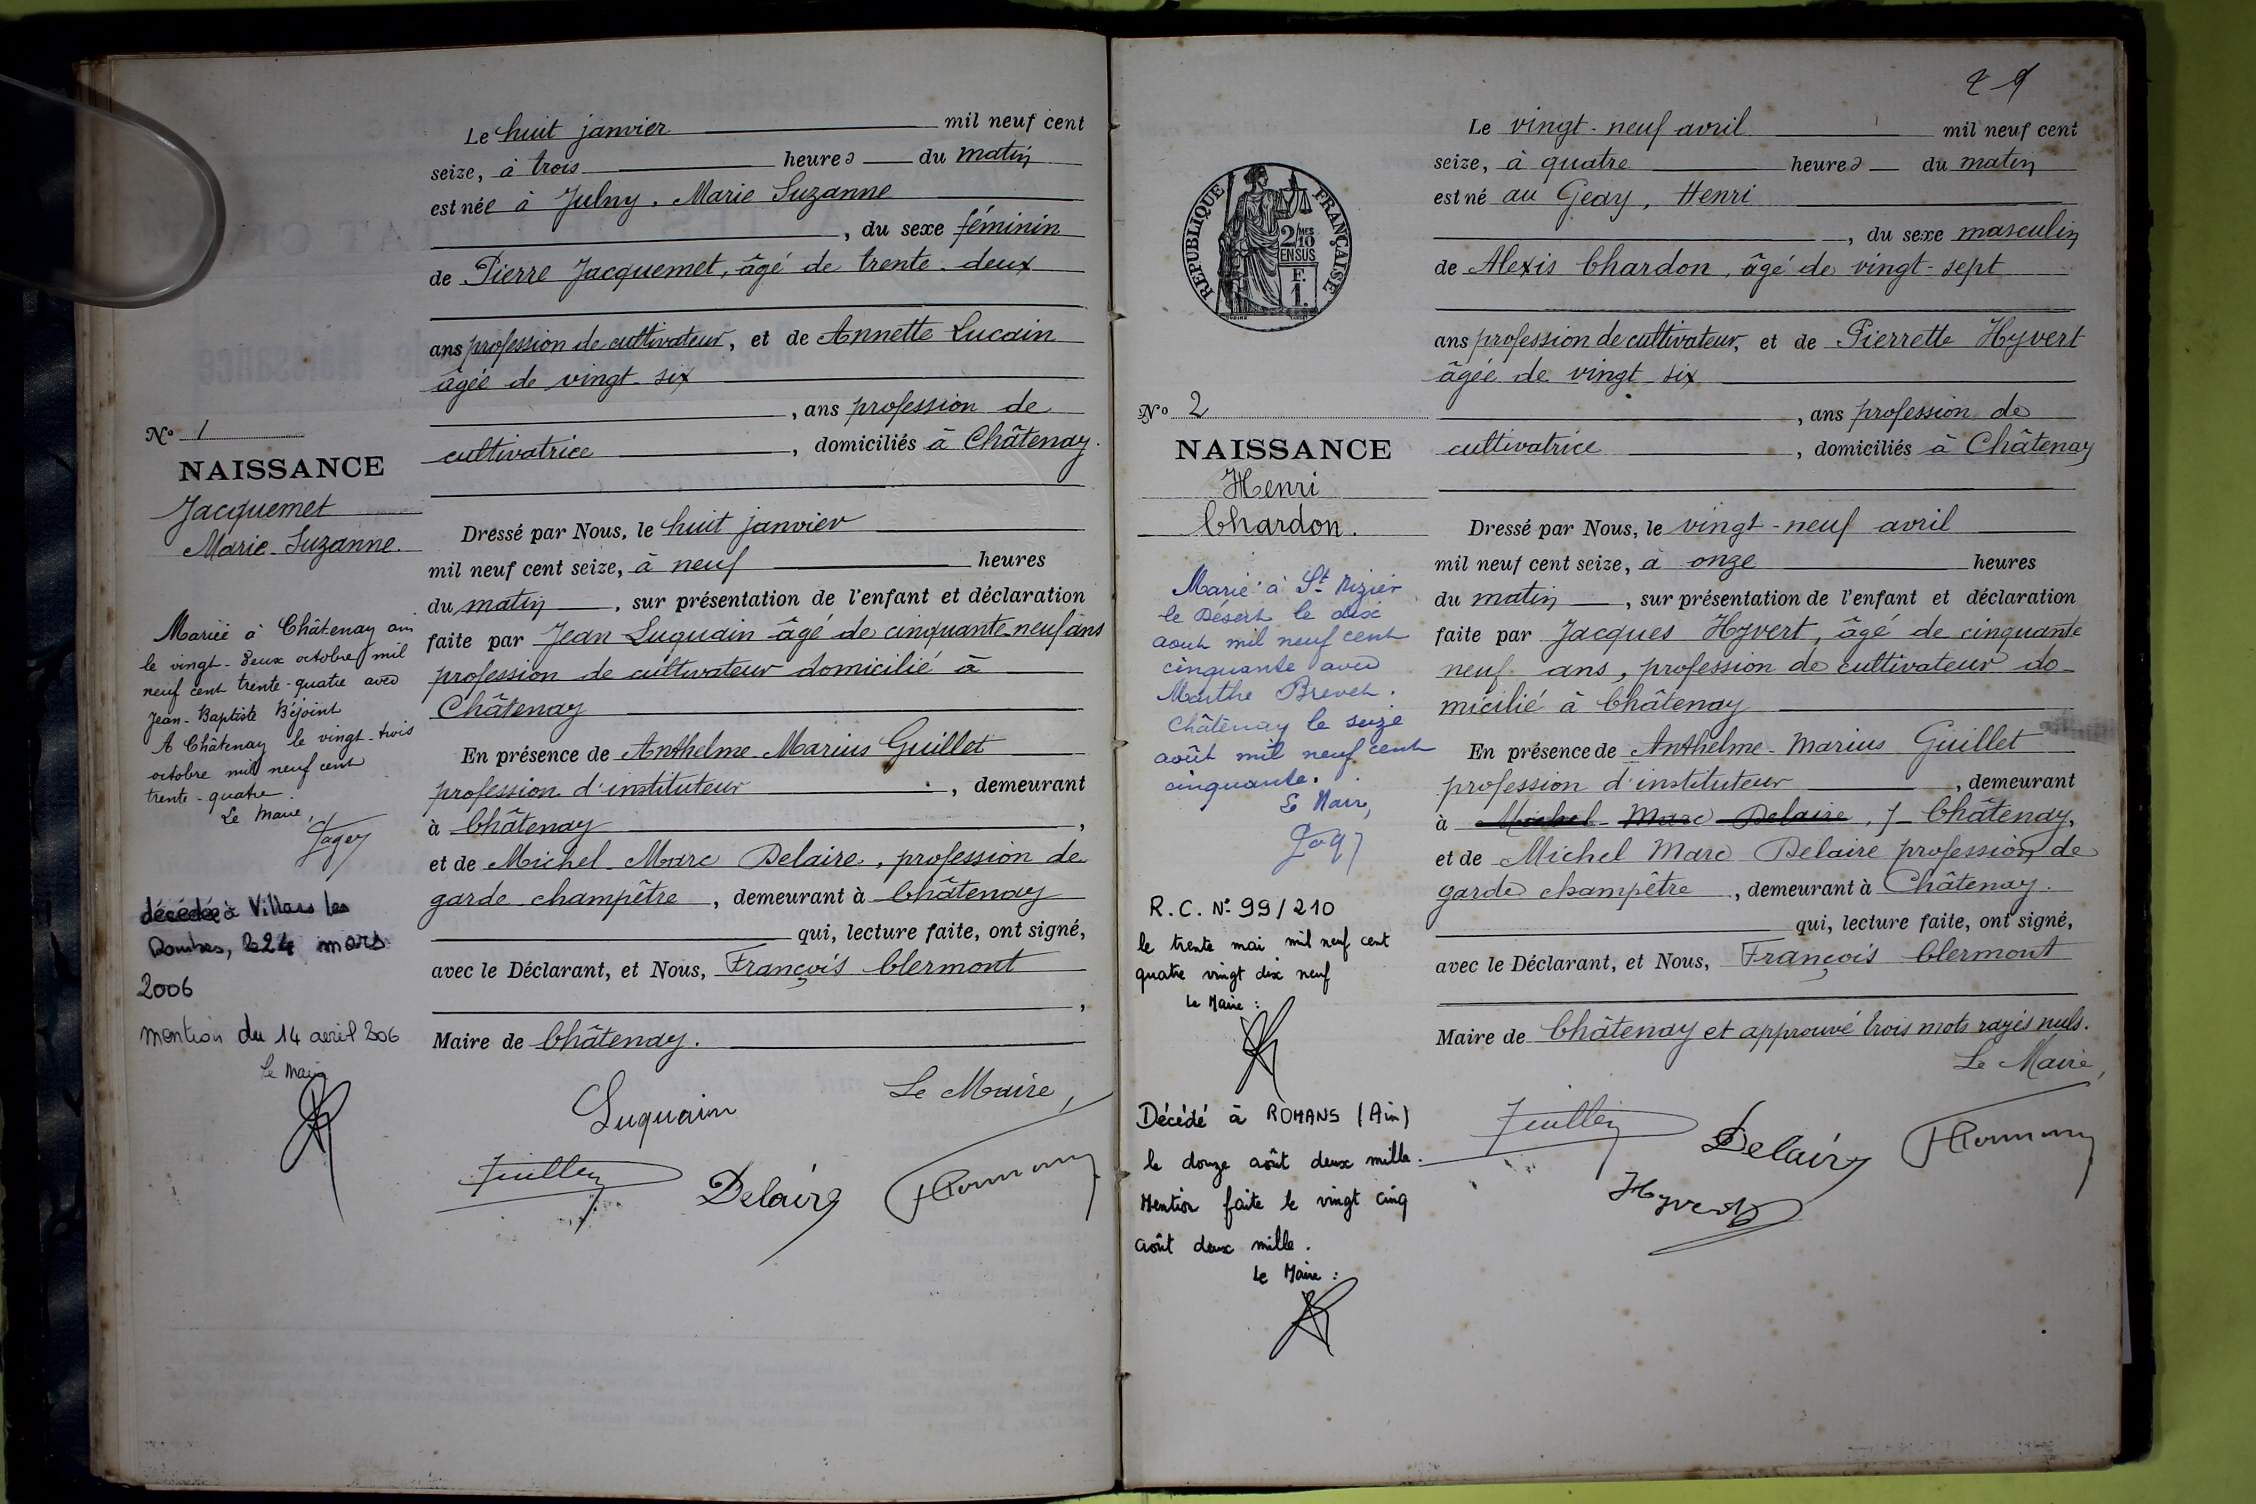 Le huit janvier mil neuf cent
seize, à trois heures du matin
est née à Julny. Marie Suzanne
, du sexe féminin
de Pierre Jacquemet, âgé de trente-deux
ans profession de cultivateur, et de Annette Lucain
âgée de vingt-six
, ans profession de
cultivatrice, domiciliés à Châtenay.
Dressé par Nous, le huit janvier
mil neuf cent seize, à neuf heures
du matin, sur présentation de l'enfant et déclaration
faite par Jean Luquain âgé de cinquante-neuf ans
profession de cultivateur domicilié à
Châtenay
En présence de Anthelme-Marius Guillet
profession d'instituteur, demeurant
à Châtenay,
et de Michel-Marc Delaire, profession de
garde champêtre, demeurant à Châtenay
qui, lecture faite, ont signé,
avec le Déclarant, et Nous, François Clermont
,
Maire de Châtenay.
Le Maire,
Luquain
Delaire
No 1
NAISSANCE
Jacquemet
Marie-Suzanne.
Mariée à Châtenay ain
le vingt-deux octobre mil
neuf cent trente-quatre avec
Jean-Baptiste Béjoint
A Châtenay le vingt-trois
octobre mil neuf cent
trente-quatre.
Le Maire,
décédée à Villars les
Dombes, le 24 mars
2006
mention du 14 avril 2006
Le Maire
29
Le vingt-neuf avril mil neuf cent
seize, à quatre heures du matin
est né au Geay, Henri
, du sexe masculin
de Alexis Chardon, âgé de vingt-sept
ans profession de cultivateur, et de Pierrette Hyvert
âgée de vingt-six
, ans profession de
cultivatrice, domiciliés à Châtenay
Dressé par Nous, le vingt-neuf avril
mil neuf cent seize, à onze heures
du matin, sur présentation de l'enfant et déclaration
faite par Jacques Hyvert, âgé de cinquante
neuf ans, profession de cultivateur do-
micilié à Châtenay
En présence de Anthelme-Marius Guillet
profession d'instituteur, demeurant
à Michel-Marc Delaire, Châtenay,
et de Michel Marc Delaire profession de
garde champêtre, demeurant à Châtenay.
qui, lecture faite, ont signé,
avec le Déclarant, et Nous, François Clermont
Maire de Châtenay et approuvé trois mots rayés nuls.
Le Maire,
Delaire
Hyvert
RÉPUBLIQUE FRANÇAISE
2/10 MES
EN SUS
F.
1.
No 2
NAISSANCE
Henri
Chardon.
Marié à St Nizier
le Désert le dix
aout mil neuf cent
cinquante avec
Marthe Brevet.
Châtenay le seize
août mil neuf cent
cinquante.
Le Maire,
R.C. No 99/210
le trente mai mil neuf cent
quatre vingt dix neuf
Le Maire :
Décédé à ROMANS (Ain)
le douze août deux mille.
Mention faite le vingt cinq
août deux mille.
Le Maire :